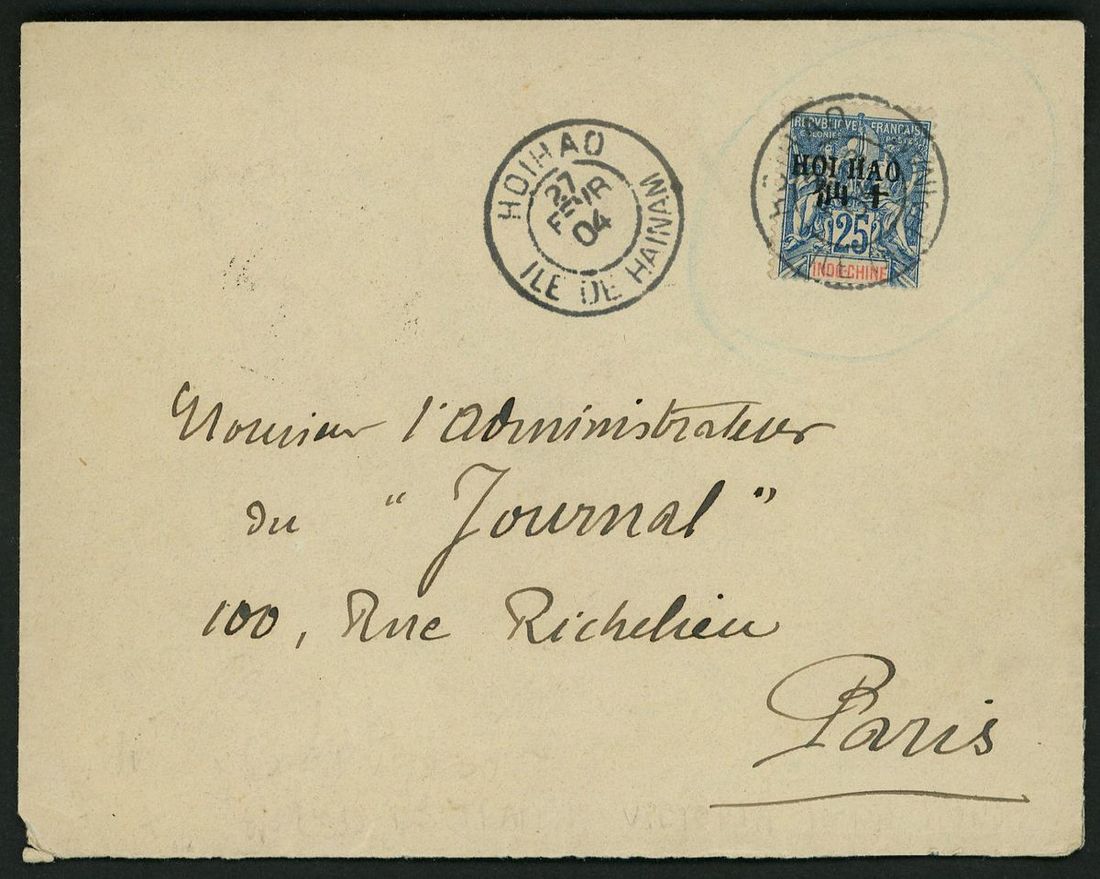 HOIHAO
27
FEVR
04
ILE DE HAINAM
REPUBLIQUE FRANÇAISE
COLONIES POSTES
HOI HAO
25
INDO-CHINE
Monsieur l'Administrateur
du "Journal"
100, Rue Richelieu
Paris